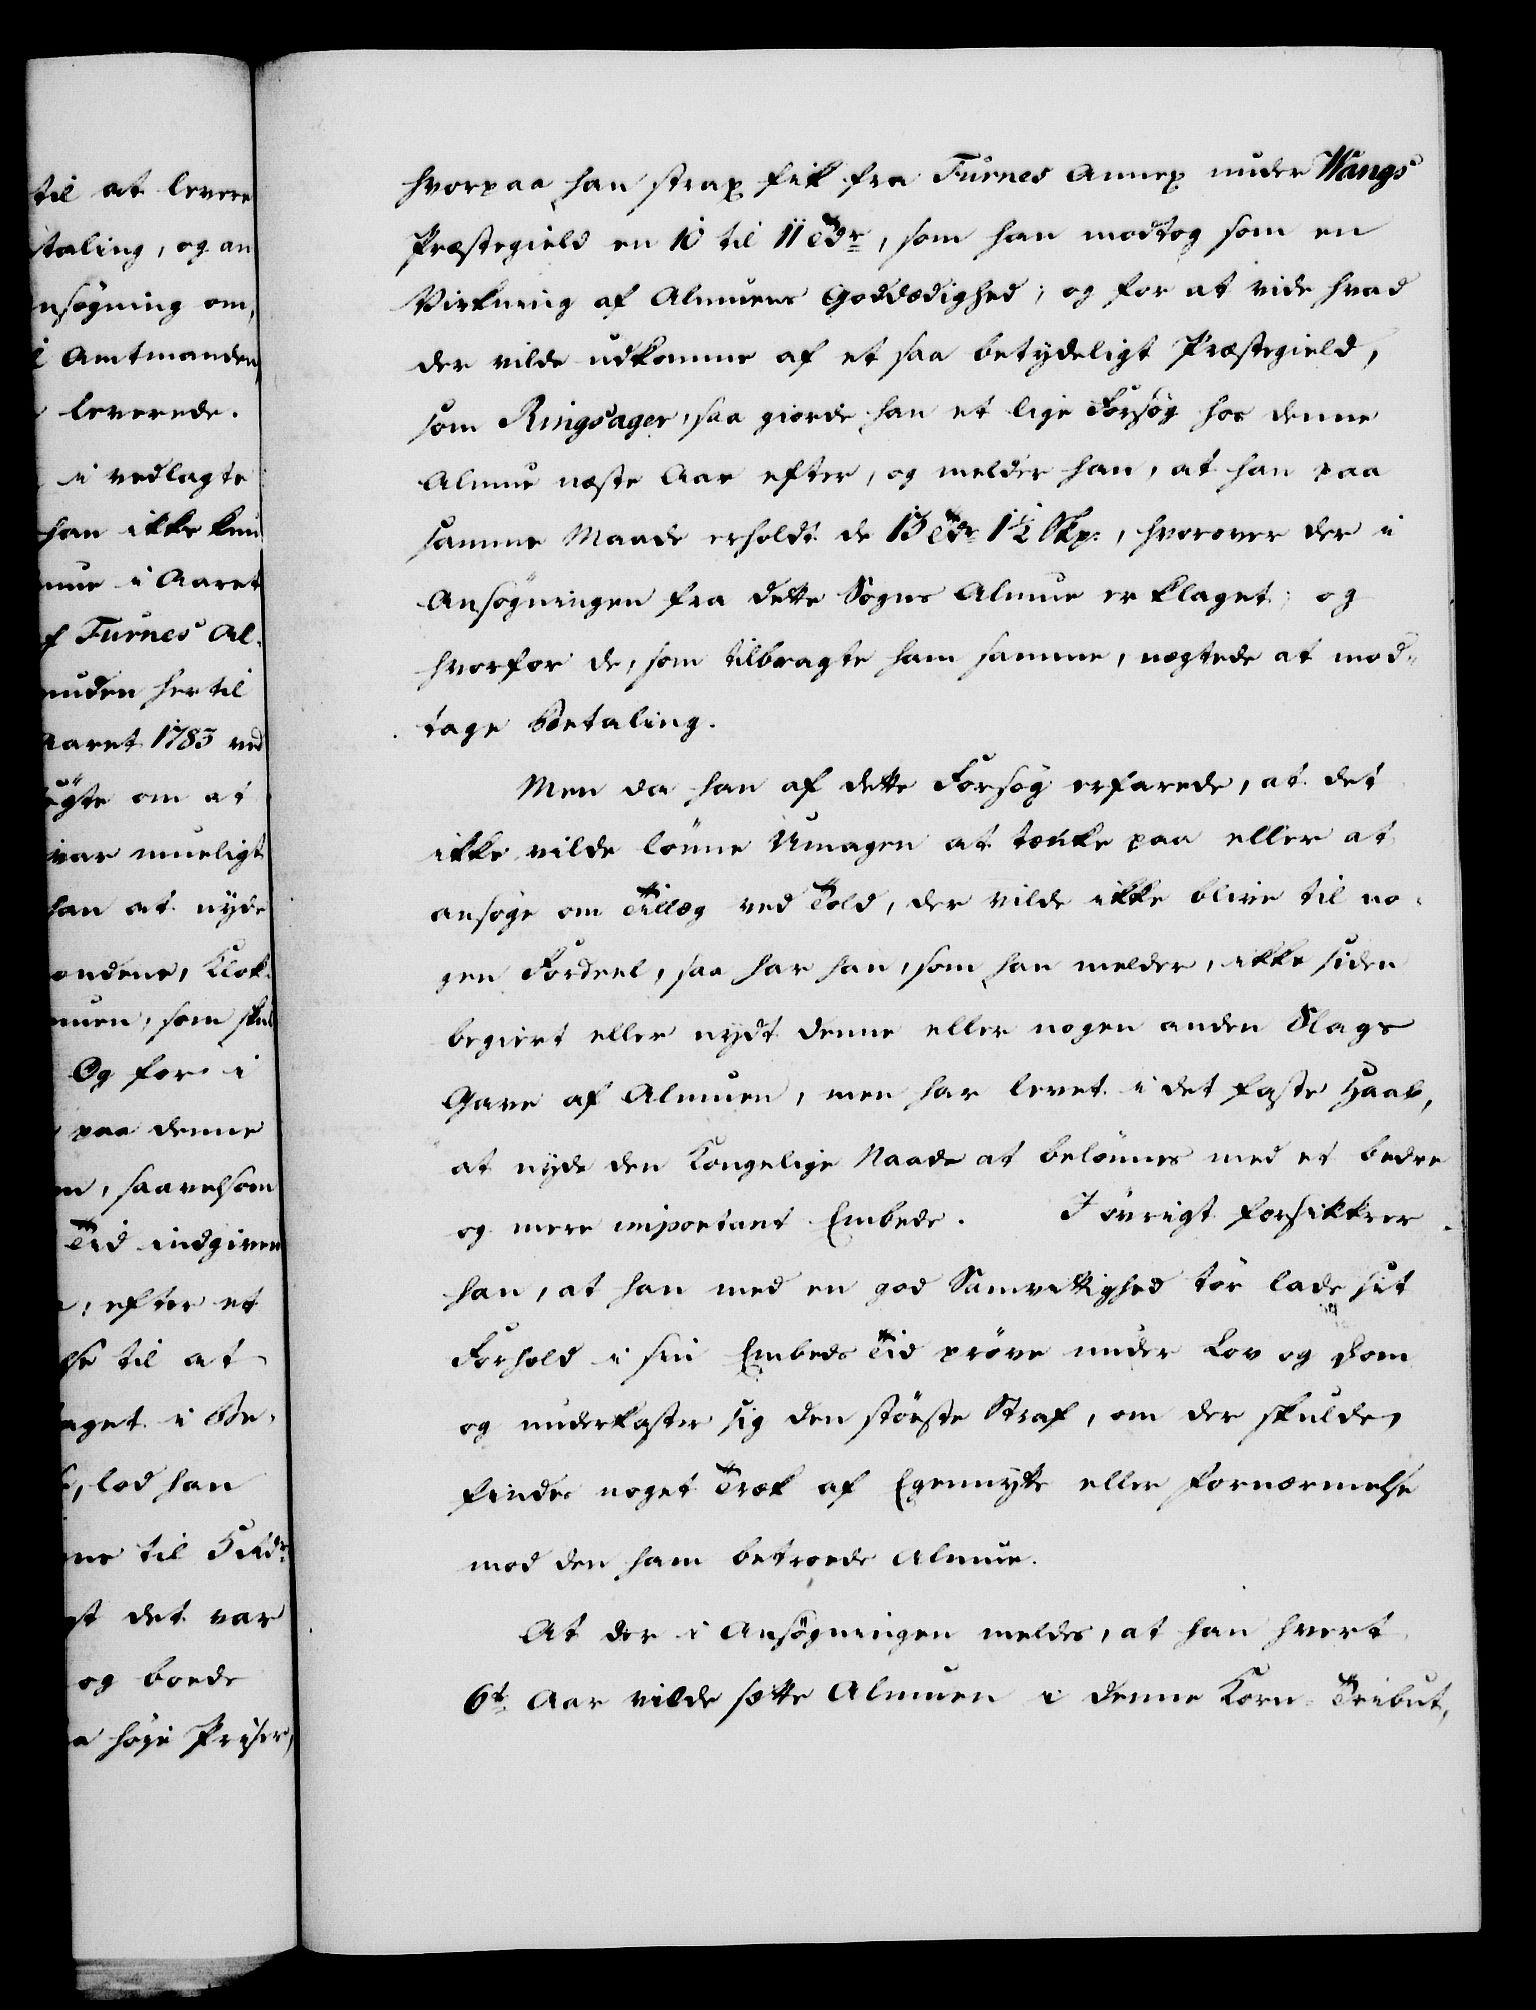 til at levere
taling, og an
nsøgning om,
Amtmanden,
leverede.
i vedlagte
han ikke kun
mue i Aaret
f Furnes Al¬
muden hertil
Aaret 1785 ved
øgte om at
var mueligt
han at nyde
øndene, Klok¬
muen, som skul
Og for i
paa denne
en, saavelsom
Tid indgiven
, efter et
lse til at
aget i Be¬
, lod han
ns til
st det var
og boede
a høje Priser,
hvorpaa han strax fik fra Furnes Annex under Wangs
Præstegield en 10 til 11 Tdr, som han modtog som en
Virkning af Almuens Goddædighed; og for at vide hvad
der vilde udkomme af et saa betydeligt Præstegield,
som Ringsager, saa giorde han et lige Forsøg hos denne
Almue næste Aar efter, og melder han, at han paa
samme Maade erholdt de 13 Tdr 1½ Skp:, hvorover der i
Ansøgningen fra dette Sogns Almue er klaget; og
hvorfor de, som tilbragte ham samme, nægtede at mod¬
tage Betaling.
Men da han af dette Forsøg erfarede, at det
ikke vilde lönne Umagen at tænke paa eller at
ansøge om Tillæg ved Told, der vilde ikke blive til no¬
gen Fordeel, saa har han, som han melder, ikke siden
begiert eller nydt denne eller nogen anden Slags
Gave af Almuen, men har levet i det faste Haab,
at nyde den Kongelige Naade at belönnes med et bedre
og mere important Embede. I øvrigt forsikkrer
han, at han med en god Samvittighed tör lade sit
Forhold i sin Embeds Tid pröve under Lov og Dom
og underkaster sig den störste Straf, om der skulde
findes noget Træk af Egennytte eller Fornærmelse
mod den ham betroede Almue.
At der i Ansøgningen meldes, at han hvert
6te Aar vilde sætte Almuen i denne Korn Tribut,